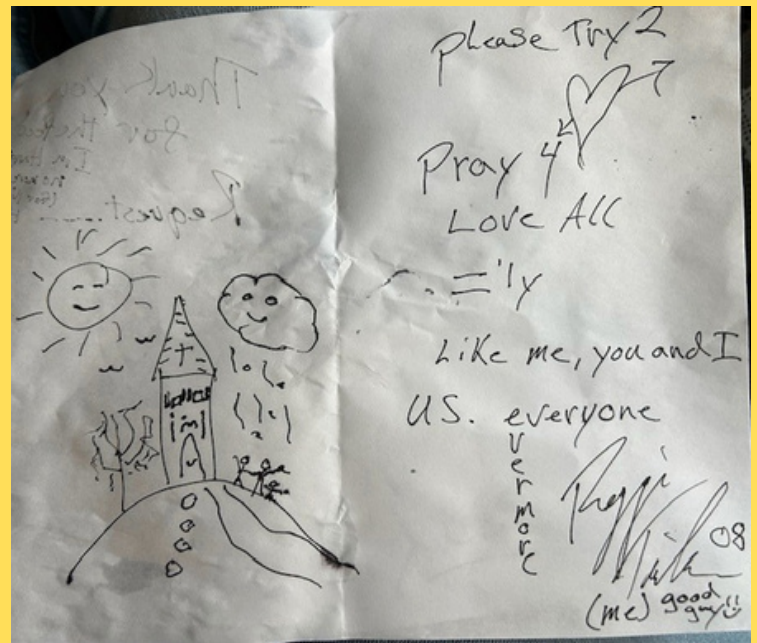 Thank you
for the
I'm
Request.....
please Try 2
Pray 4
Love All
='ly
Like me, you and I
U.S. everyone
vermore
08
(me) good
guy!!